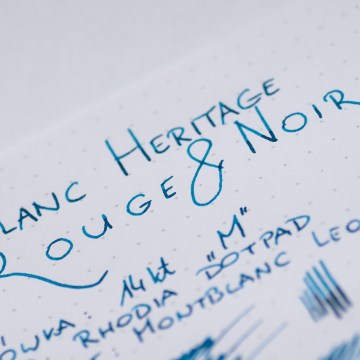 LANC HERITAGE
ROUGE & NOIR
14kt "M"
ÓWKA RHODIA DOTPAD
MONTBLANC LEO